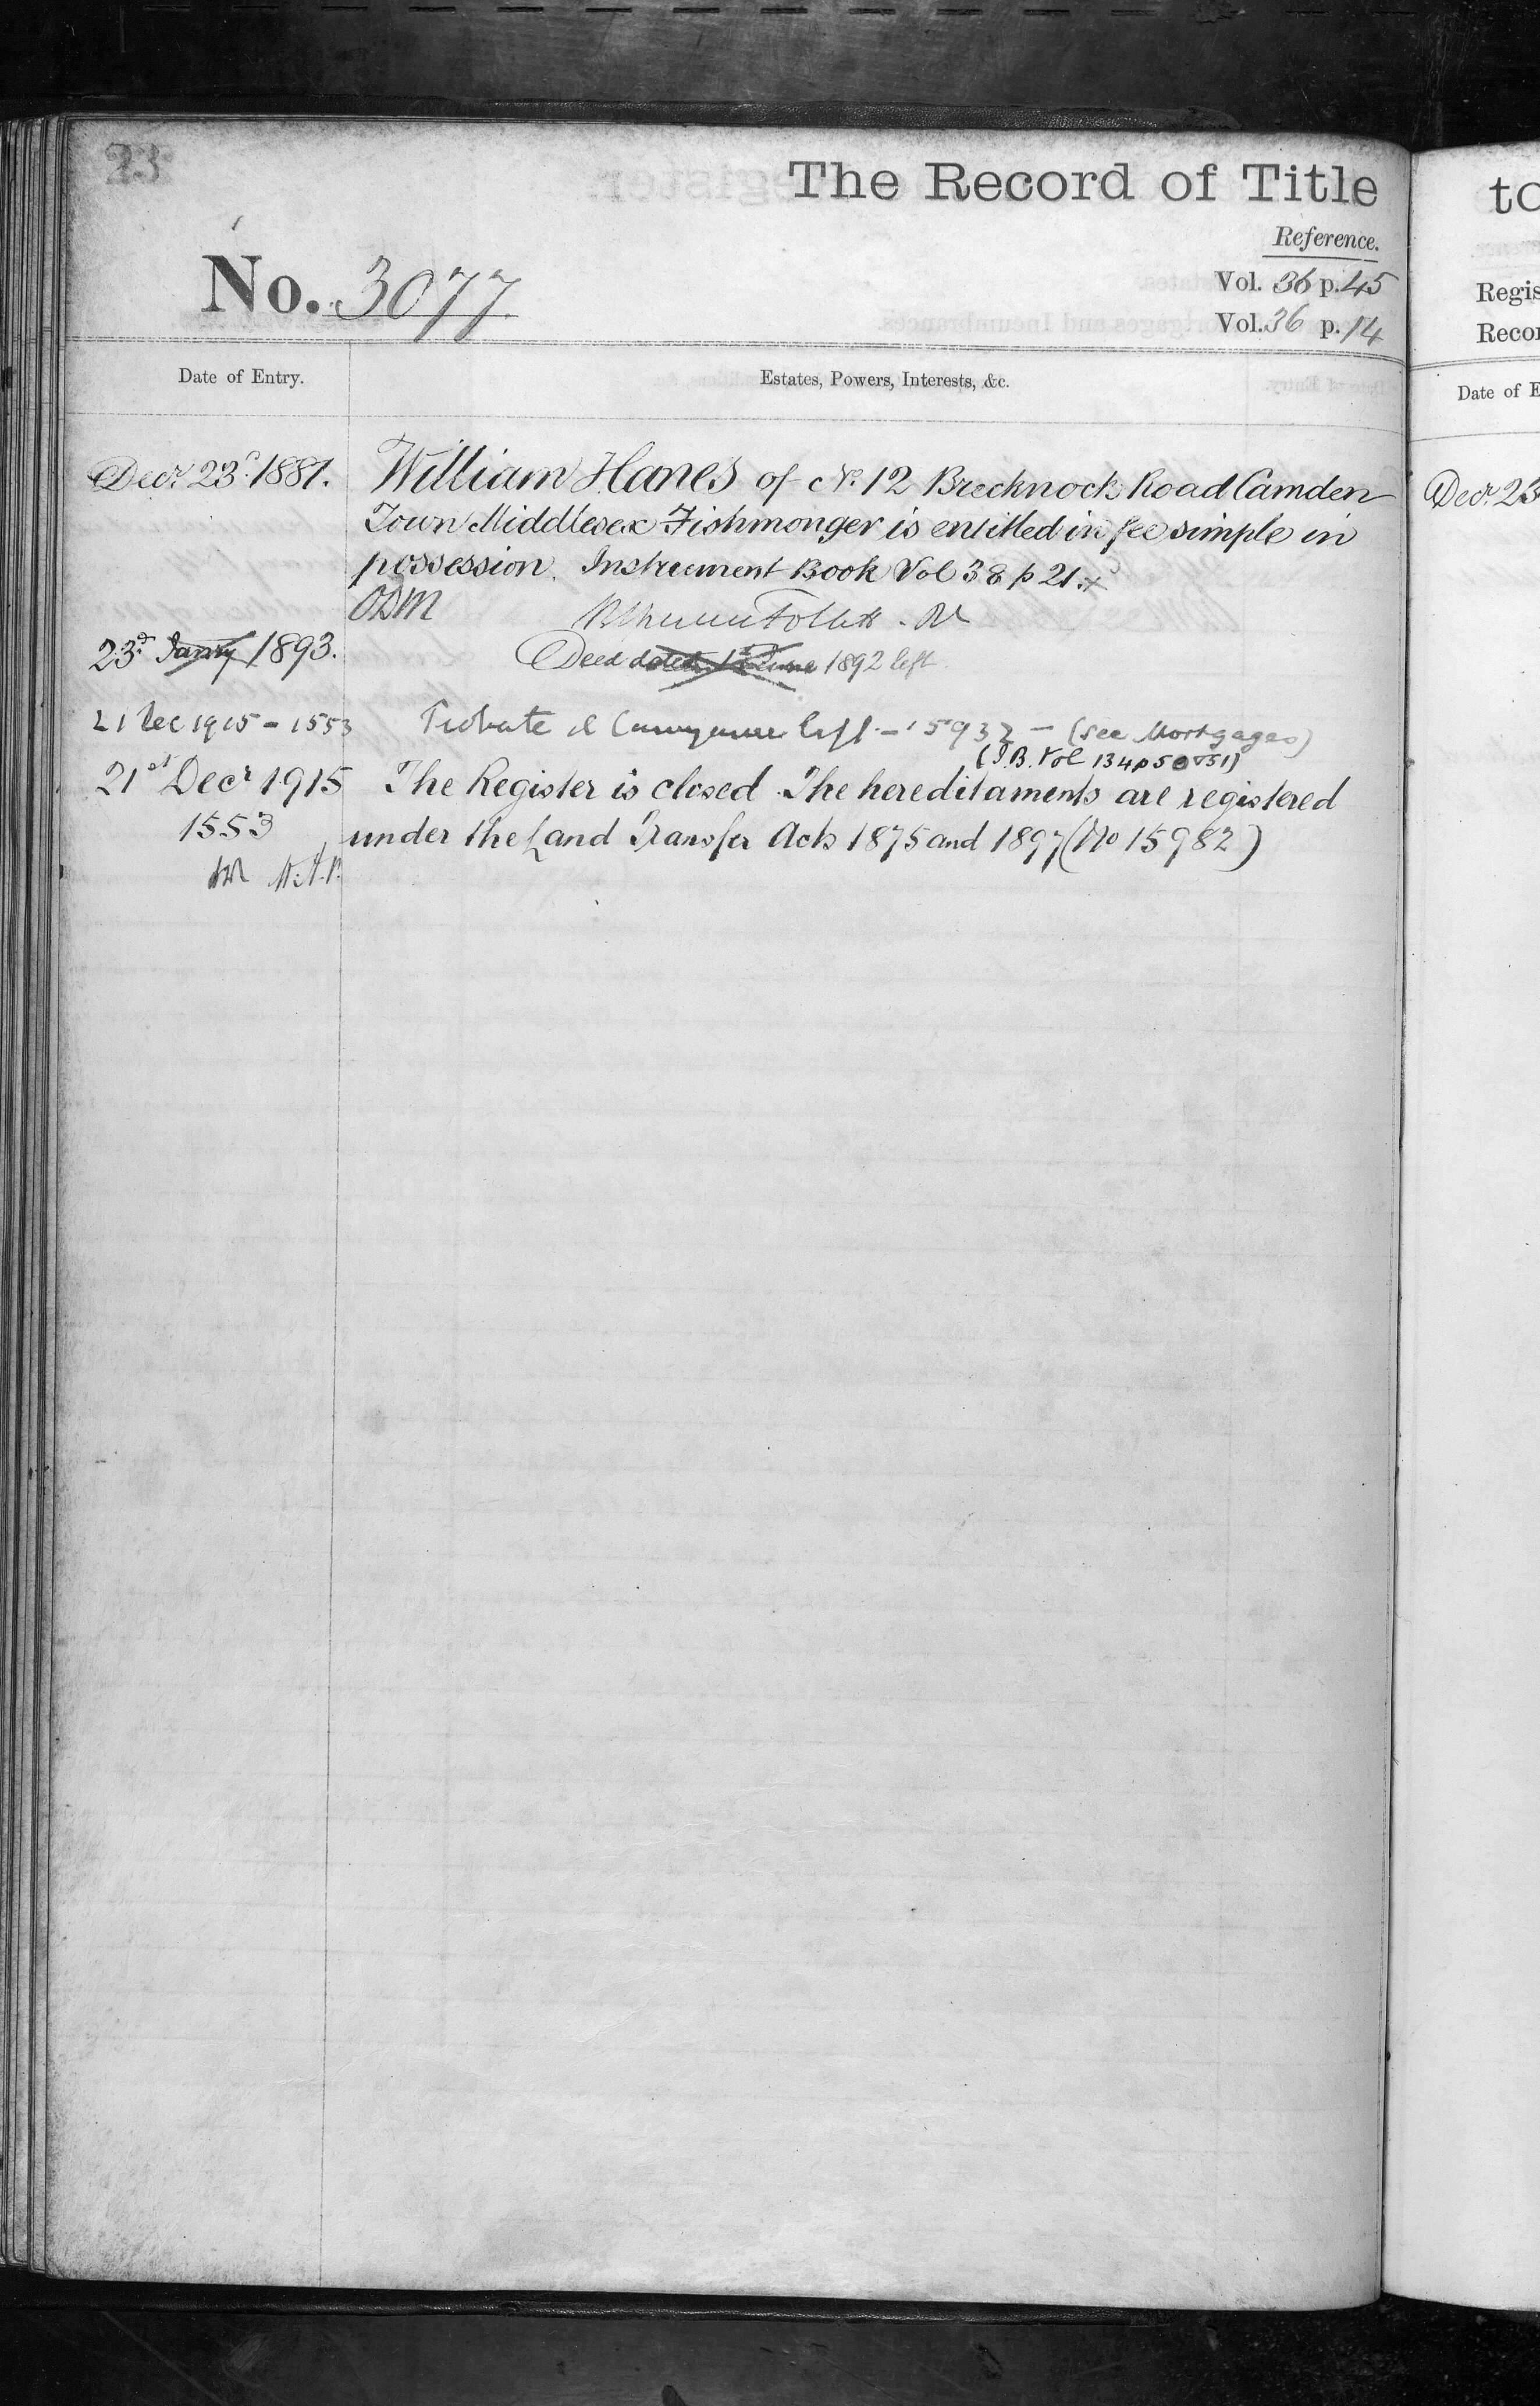 23
The Record of Title
Reference.
No. 3077
Vol. 36 p. 45
Vol. 36 p. 14
Date of Entry.
Estates, Powers, Interests, &c.
Decr. 23d. 1881.
William Hanes of No. 12 Brecknock Road Camden
Town Middlesex Fishmonger is entitled in fee simple in
possession. Instrument Book Vol 38 p 21.
ODM
Follett
23d. Janry 1893.
Deed dated 1st June 1892 left
21 Dec 1915 - 1553
Probate & Conveyance left - (see Mortgages)
(I.B. Vol 134 p 50 & 51)
21st Decr 1915
The Register is closed. The hereditaments are registered
1553
under the Land Transfer Acts 1875 and 1897 (No 15982)
to
Regis
Recor
Date of E
Decr. 23